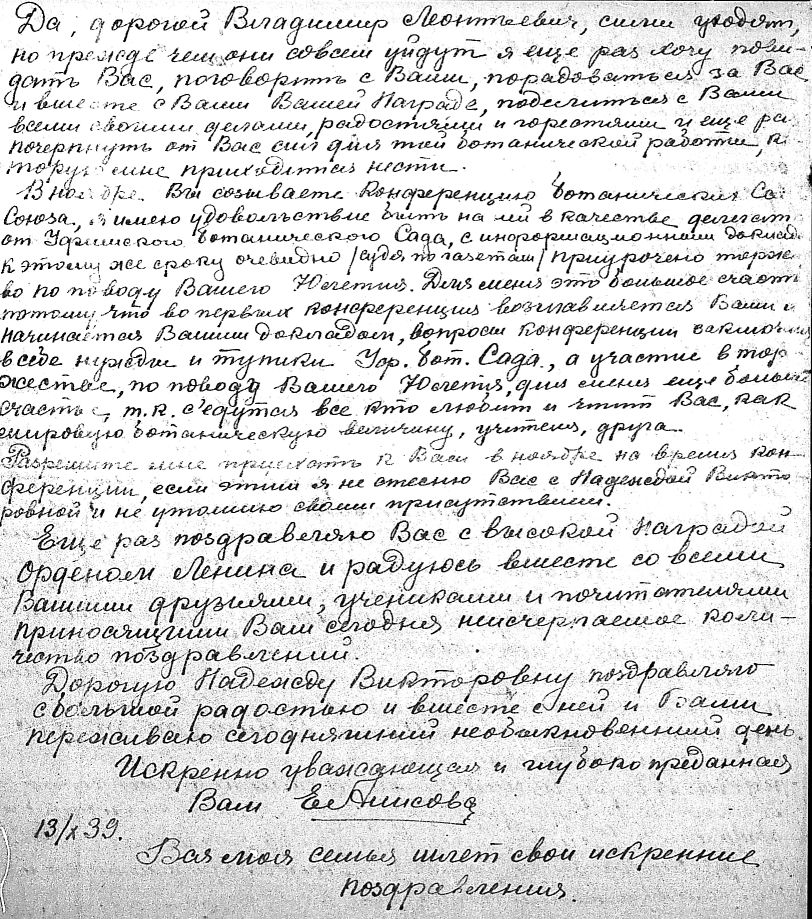 Да, дорогой Владимир Леонтьевич, силы уходят,
но прежде чем они совсем уйдут я еще раз хочу пови-
дать Вас, поговорить с Вами, порадоваться за Вас
и вместе с Вами Вашей Награде, поделиться с Вами
всеми своими делами, радостями и горестями и еще ра
почерпнуть от Вас сил для той ботанической работы, к
торую мне приходится нести.
В ноябре Вы созываете Конференцию Ботанических Са
Союза, я имею удовольствие быть на ней в качестве делегат
от Уфимского Ботанического Сада, с информационным доклад
К этому же сроку очевидно /судя по газетам/ приурочено торже
во по поводу Вашего Юбилея. Для меня это большое счасть
потому что во первых конференция возглавляется Вами и
начинается Вашим докладом, вопросы конференции заключа
в себе нужды и тупики Уф. Бот. Сада, а участие в тор
жестве, по поводу Вашего Юбилея, для меня еще больш
счастье, т.к. с'едутся все кто любит и чтит Вас, как
мировую ботаническую величину, учителя, друга.
Разрешите мне приехать к Вам в ноябре на время кон
ференции, если этим я не стесню Вас с Надеждой Викто
ровной и не утомлю своим присутствием.
Еще раз поздравляю Вас с высокой Наградой
Орденом Ленина и радуюсь вместе со всеми
Вашими друзьями, учениками и почитателями
приносящими Вам сегодня неисчерпаемое коли-
чество поздравлений.
Дорогую Надежду Викторовну поздравляю
с большой радостью и вместе с ней и Вами
переживаю сегодняшний необыкновенный день.
Искренно уважающая и глубоко преданная
Вам Е. Анисова
13/X 39.
Вся моя семья шлет свои искренние
поздравления.